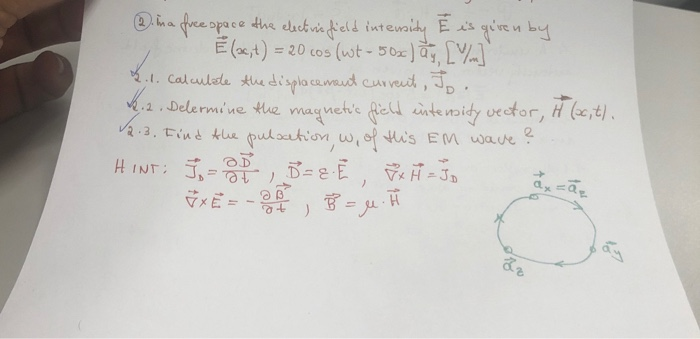 ②. in a free space the electric field intensity E⃗ is given by
E⃗(x,t) = 20 cos(wt - 50x) a⃗y, [V/m]
2.1. Calculate the displacement current, J⃗D.
2.2. Determine the magnetic field intensity vector, H⃗(x,t).
2.3. Find the pulsation, w, of this EM wave?
HINT: J⃗D = ∂D⃗/∂t , D⃗ = ε·E⃗ , ∇⃗×H⃗ = J⃗D
∇⃗×E⃗ = -∂B⃗/∂t , B⃗ = μ·H⃗
a⃗x = a⃗z
a⃗y
a⃗z